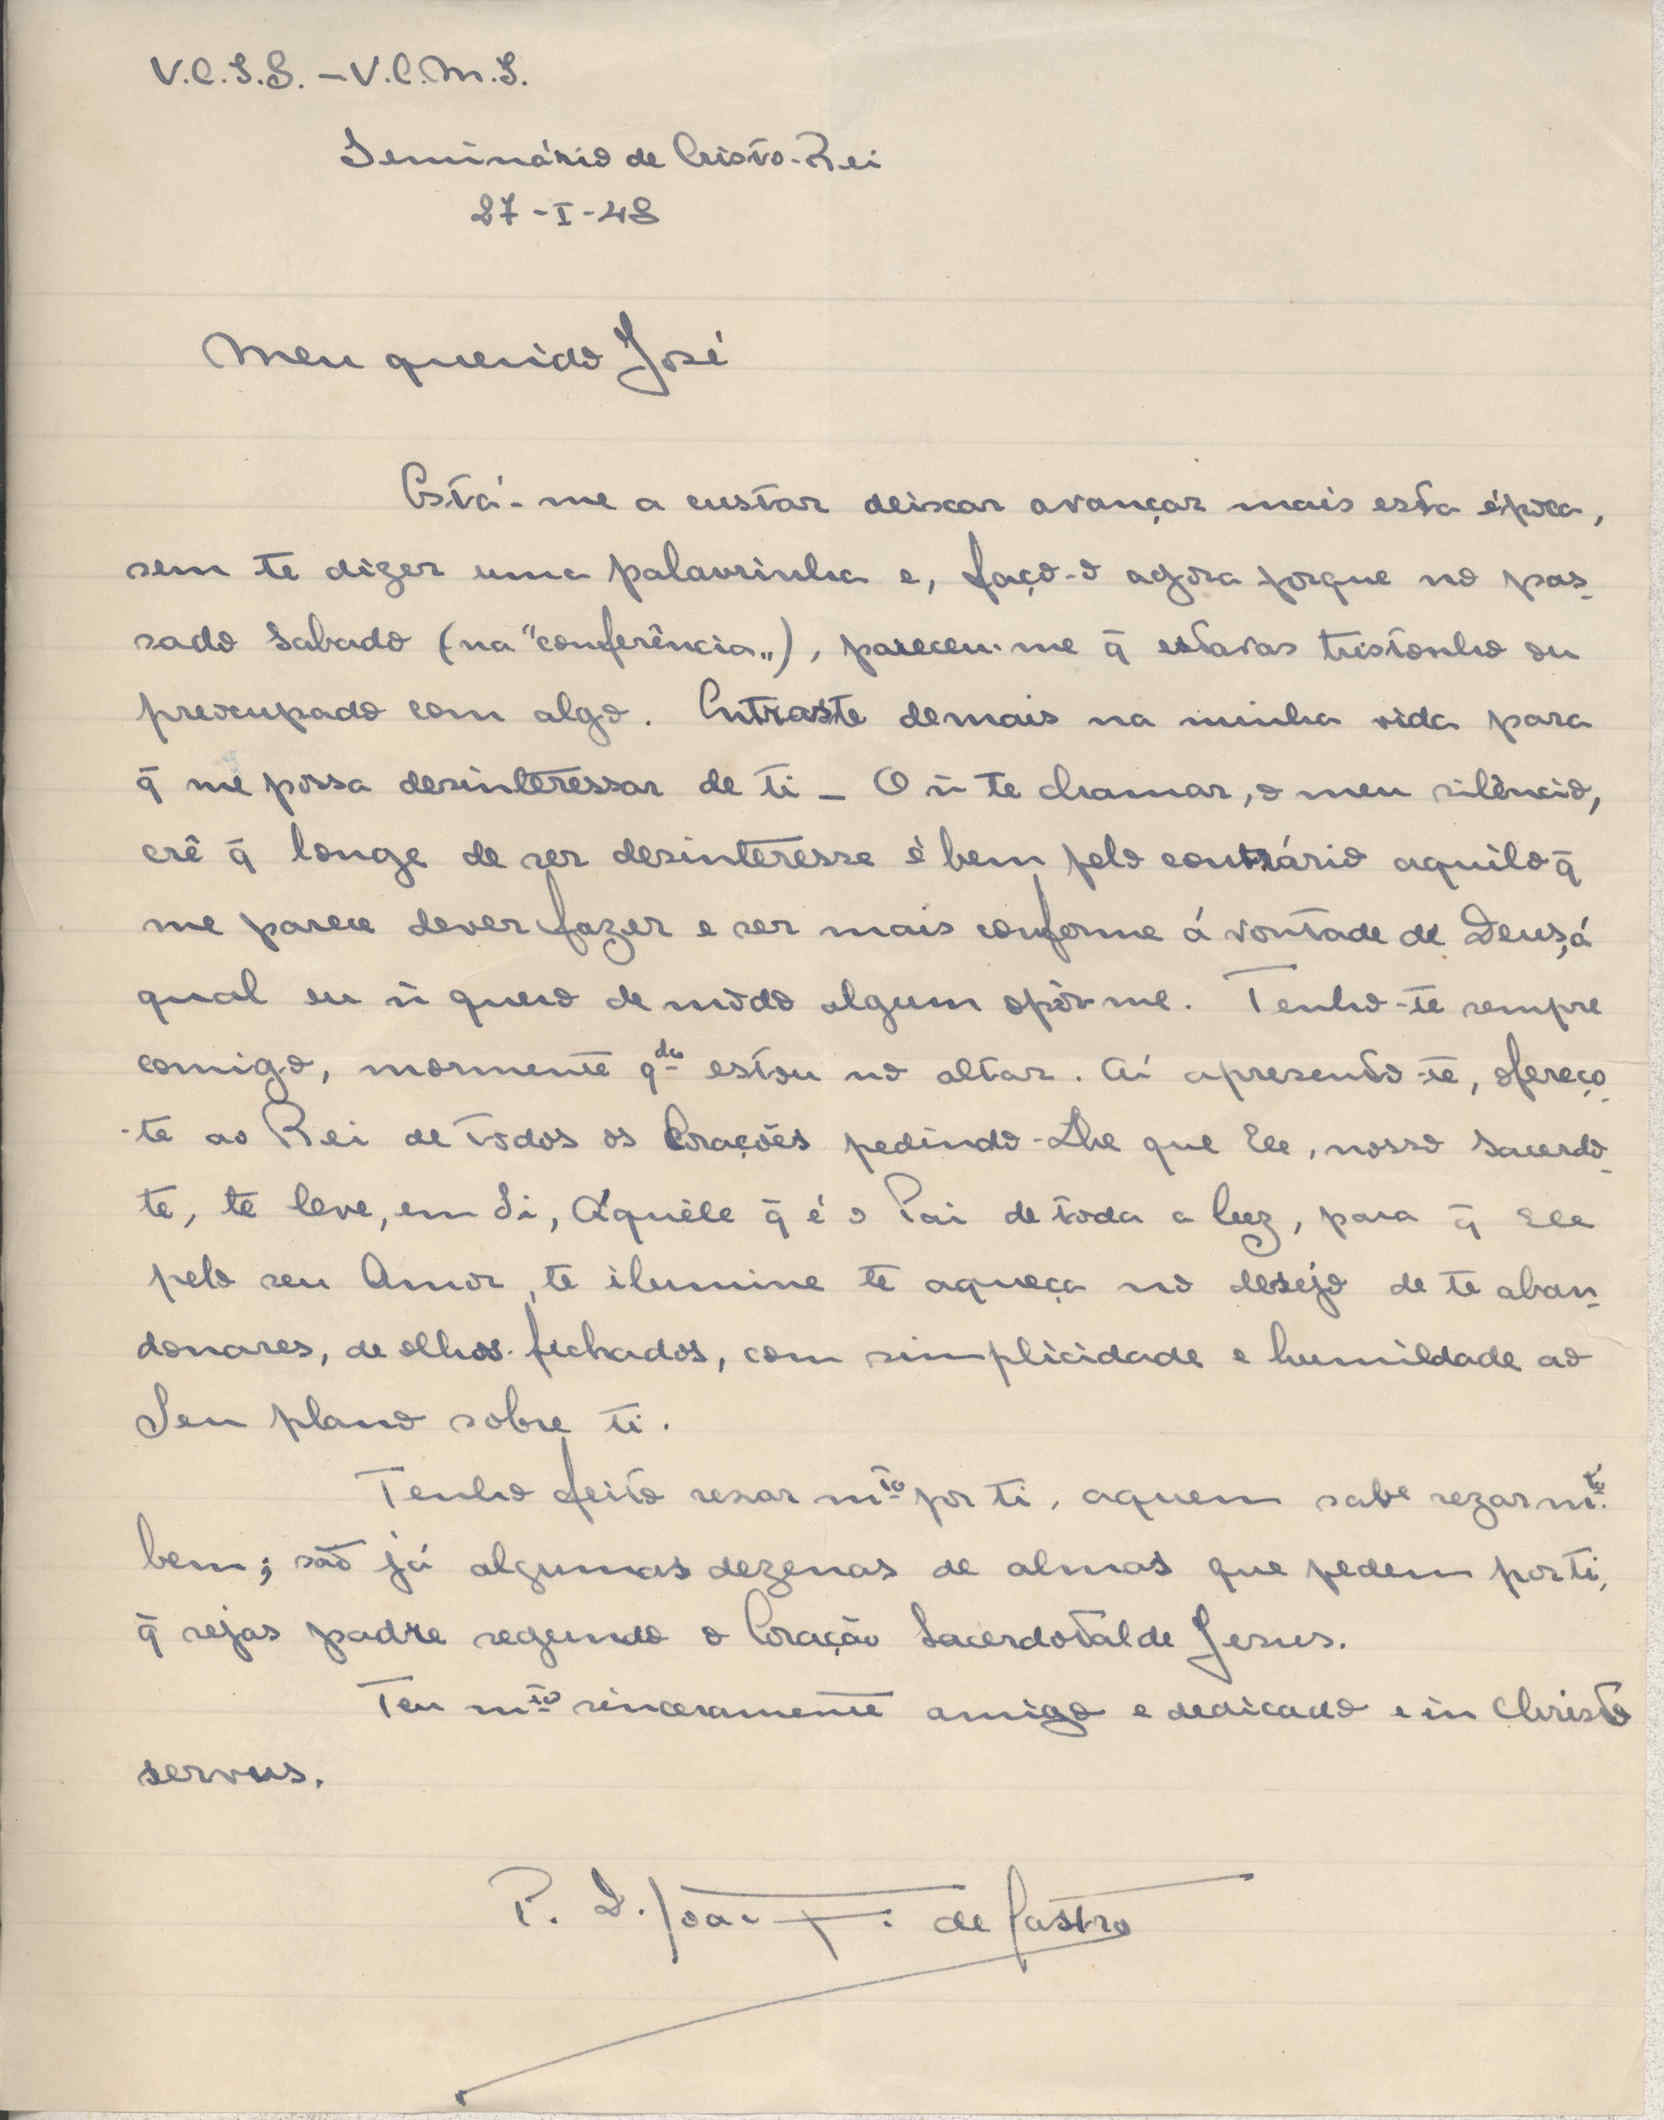 V.C.J.S. – V.C.M.I.
Seminário de Cristo-Rei
27-I-48
Meu querido José
Está-me a custar deixar avançar mais esta época,
sem te dizer uma palavrinha e, faço-o agora porque no pas-
sado Sabado (na "conferência„), pareceu-me q̄ estavas tristonho ou
preocupado com algo. Entraste demais na minha vida para
q̄ me possa desinteressar de ti – O ñ te chamar, o meu silêncio,
crê q̄ longe de ser desinteresse é bem pelo contrário aquilo q̄
me parece dever fazer e ser mais conforme á vontade de Deus, á
qual eu ñ quero de modo algum opôr-me. Tenho-te sempre
comigo, mormente qdo estou no altar. Aí apresento-te, ofereço-
-te ao Rei de todos os Corações pedindo-Lhe que Ele, nosso Sacerdo-
te, te leve, em Si, Àquêle q̄ é o Pai de toda a luz, para q̄ Ele
pelo seu Amor, te ilumine te aqueça no desejo de te aban-
donares, de olhos fechados, com simplicidade e humildade ao
Seu plano sobre ti.
Tenho feito rezar mto por ti, a quem sabe rezar mto
bem; são já algumas dezenas de almas que pedem por ti,
q̄ sejas padre segundo o Coração Sacerdotal de Jesus.
Teu mto sinceramente amigo e dedicado e in Christo
servus.
P. de Castro